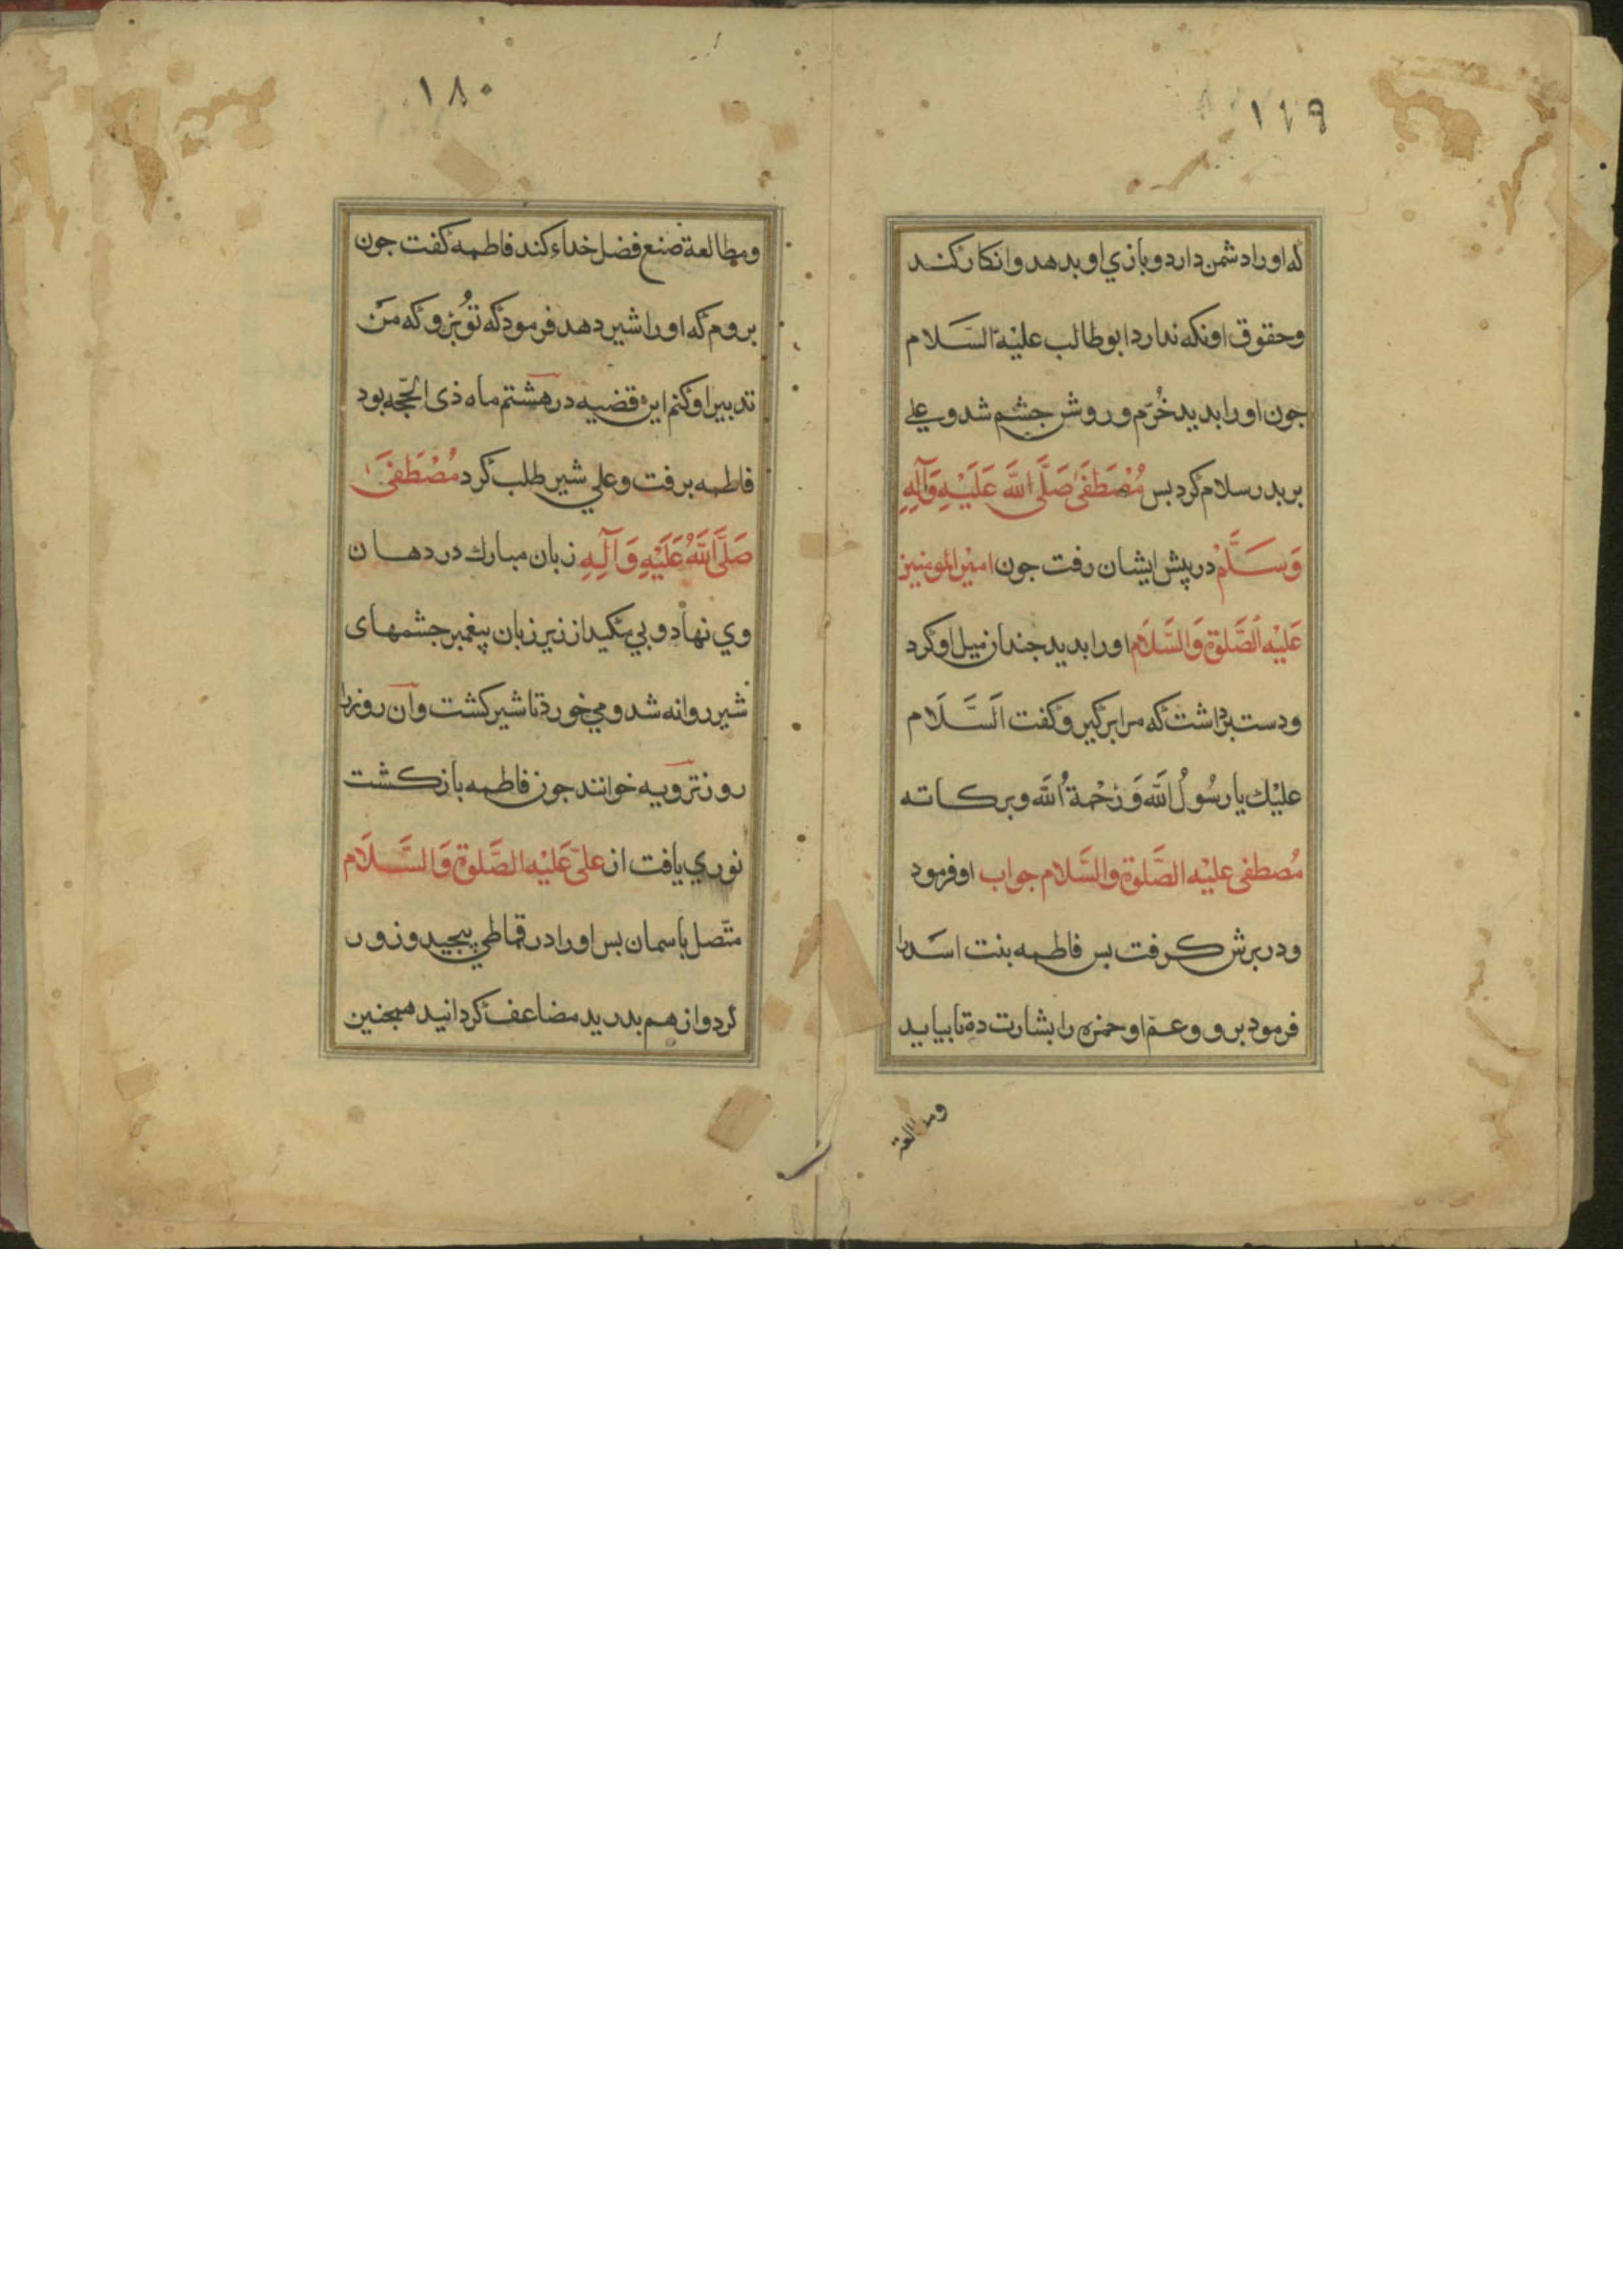 ١٧٩
كه اورا دشمن دارد و بازي او بدهد وانكار كند
وحقوق او نكه ندارد ابوطالب عليْه السَّلام
جون اورا بديد خُرّم وروشن جشم شد وعلي
بر بدر سلام كرد بس مُصْطَفَىٰ صَلَّى اللَّه عَلَيْهِ وَآلِهِ
وَسَلَّمْ در پيش ايشان رفت جون اميْر المومنين
عَليْه اَلصَّلوٰة وَالسَّلَام اورا بديد جندان ميل او كرد
ودست برداشت كه مرا بركير وكفت اَلسَّلَام
عليْك يا رسُولُ اللَّه وَرَحْمةُ اللَّه وبركاته
مُصطفى عليْه الصَّلوة والسَّلام جواب او فرمود
ودر برش كرفت بس فاطمه بنت اسَد را
فرمود برو وعمّ او حمزه را بشارت ده تا بيايد
ومطالعة
١٨٠
ومطالعة صنع فضل خداء كند فاطمه كفت جون
بروم كه اورا شير دهد فرمود كه تُو برو كه من
تدبير او كنم اين قضيه در هشتم ماه ذى الحّجه بود
فاطمه برفت وعلي شير طلب كرد مُصْطَفَىٰ
صَلَّى اللَّهُ عَلَيْهِ وَآلِهِ زبان مبارك در دهان
وي نهاد وبي مكيد از زير زبان پيغمبر جشمهاى
شير روانه شد ومي خورد تا شير كشت وآن روز را
روز ترويه خوانند جون فاطمه باز كشت
نوري يافت از علىّ عَليْه الصَّلوة وَالسَّلَام
متّصل باسمان بس اورا در قماطي پيجيد وزور
كرد واز هم بدريد مضاعف كردانيد همجنين